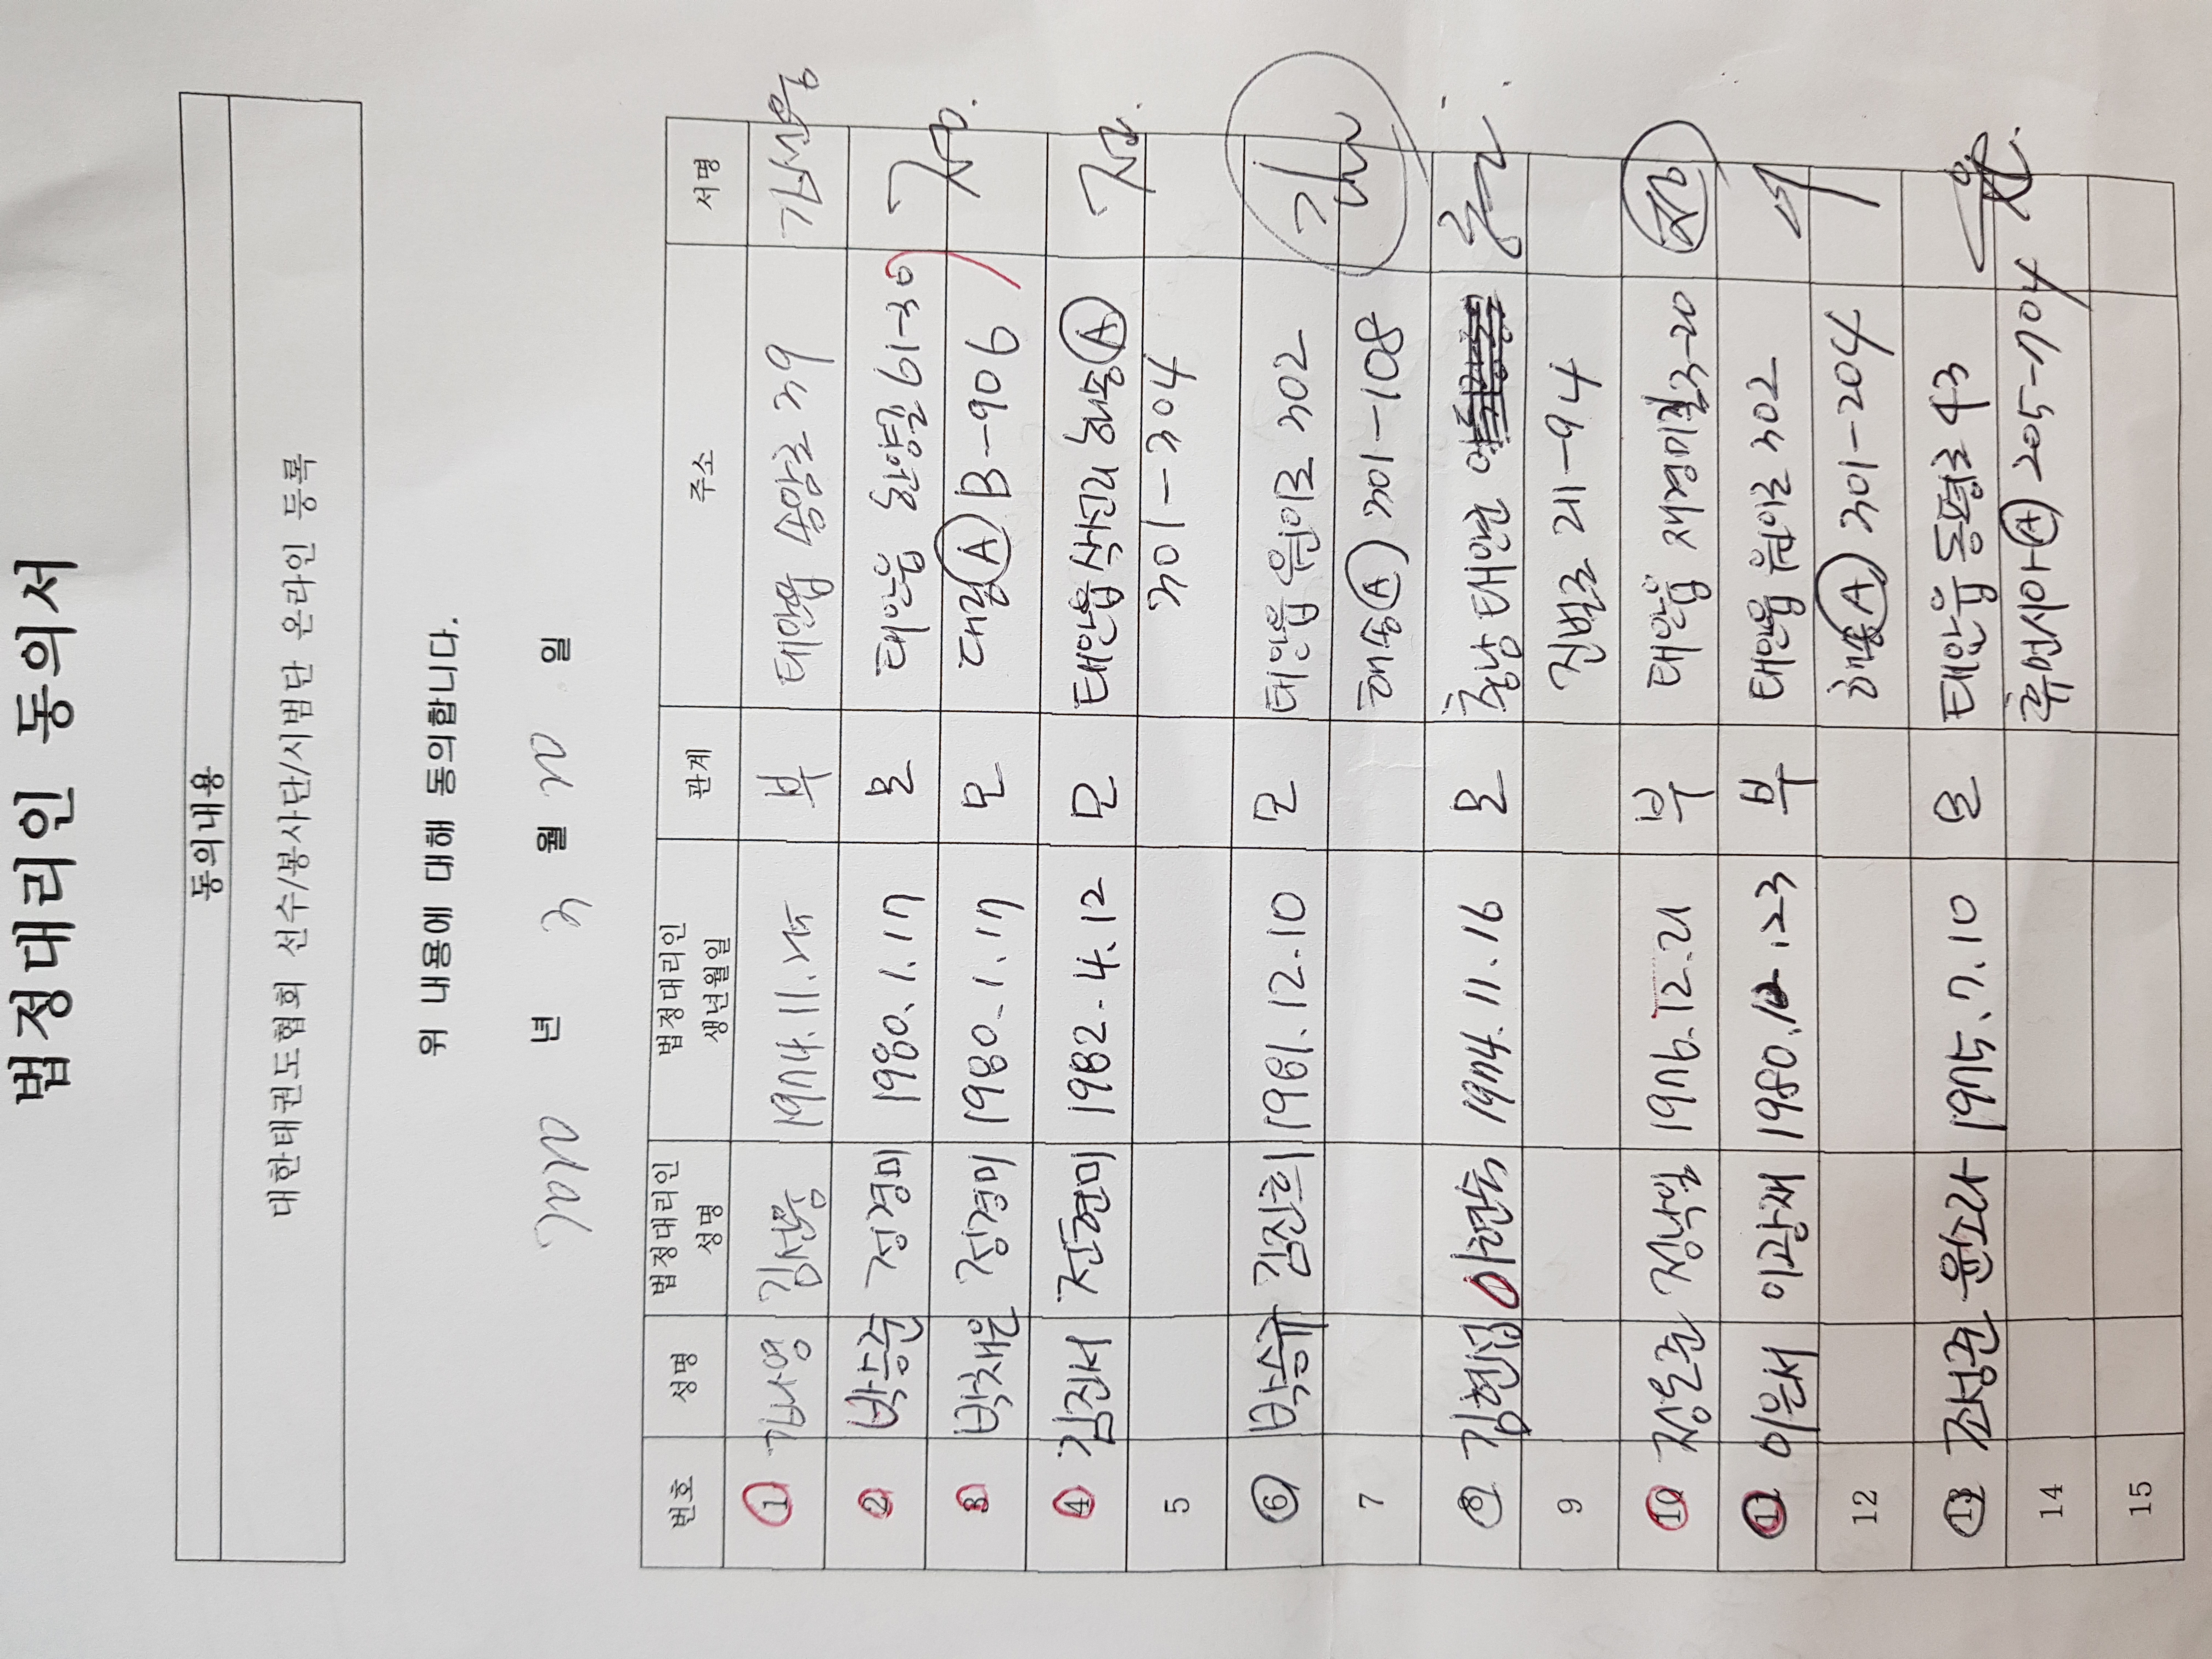 법정대리인 동의서
동의내용
대한태권도협회 선수/봉사단/시범단 온라인 등록
위 내용에 대해 동의합니다.
2020 년 3 월 20 일
번호 성명 법정대리인 성명 법정대리인 생년월일 관계 주소 서명
1 김나영 김선웅 1974.11.25 부 태안읍 송암로 39 김선웅
2 박승준 정경미 1980.1.17 모 태안읍 환영길 61-30
3 박채은 정경미 1980.1.17 모 대림A B-906
4 김진서 전현미 1982.4.12 모 태안읍 삭선리 해송A
5 301-304
6 박승유 김진희 1981.12.10 모 태안읍 원이로 302 김
7 해송A 301-108
8 김현섭 1974.11.16 모 충남 태안군
9 진벌로 21-94
10 정은준 정낙일 1976.12.21 부 태안읍 재경미길 3-20 정
11 이은서 이광재 1980.12.23 부 태안읍 원이로 302
12 해송A 301-204
13 조성준 윤소라 1975.7.10 모 태안읍 동평로 43 윤
14 휴먼시아A 205-704
15